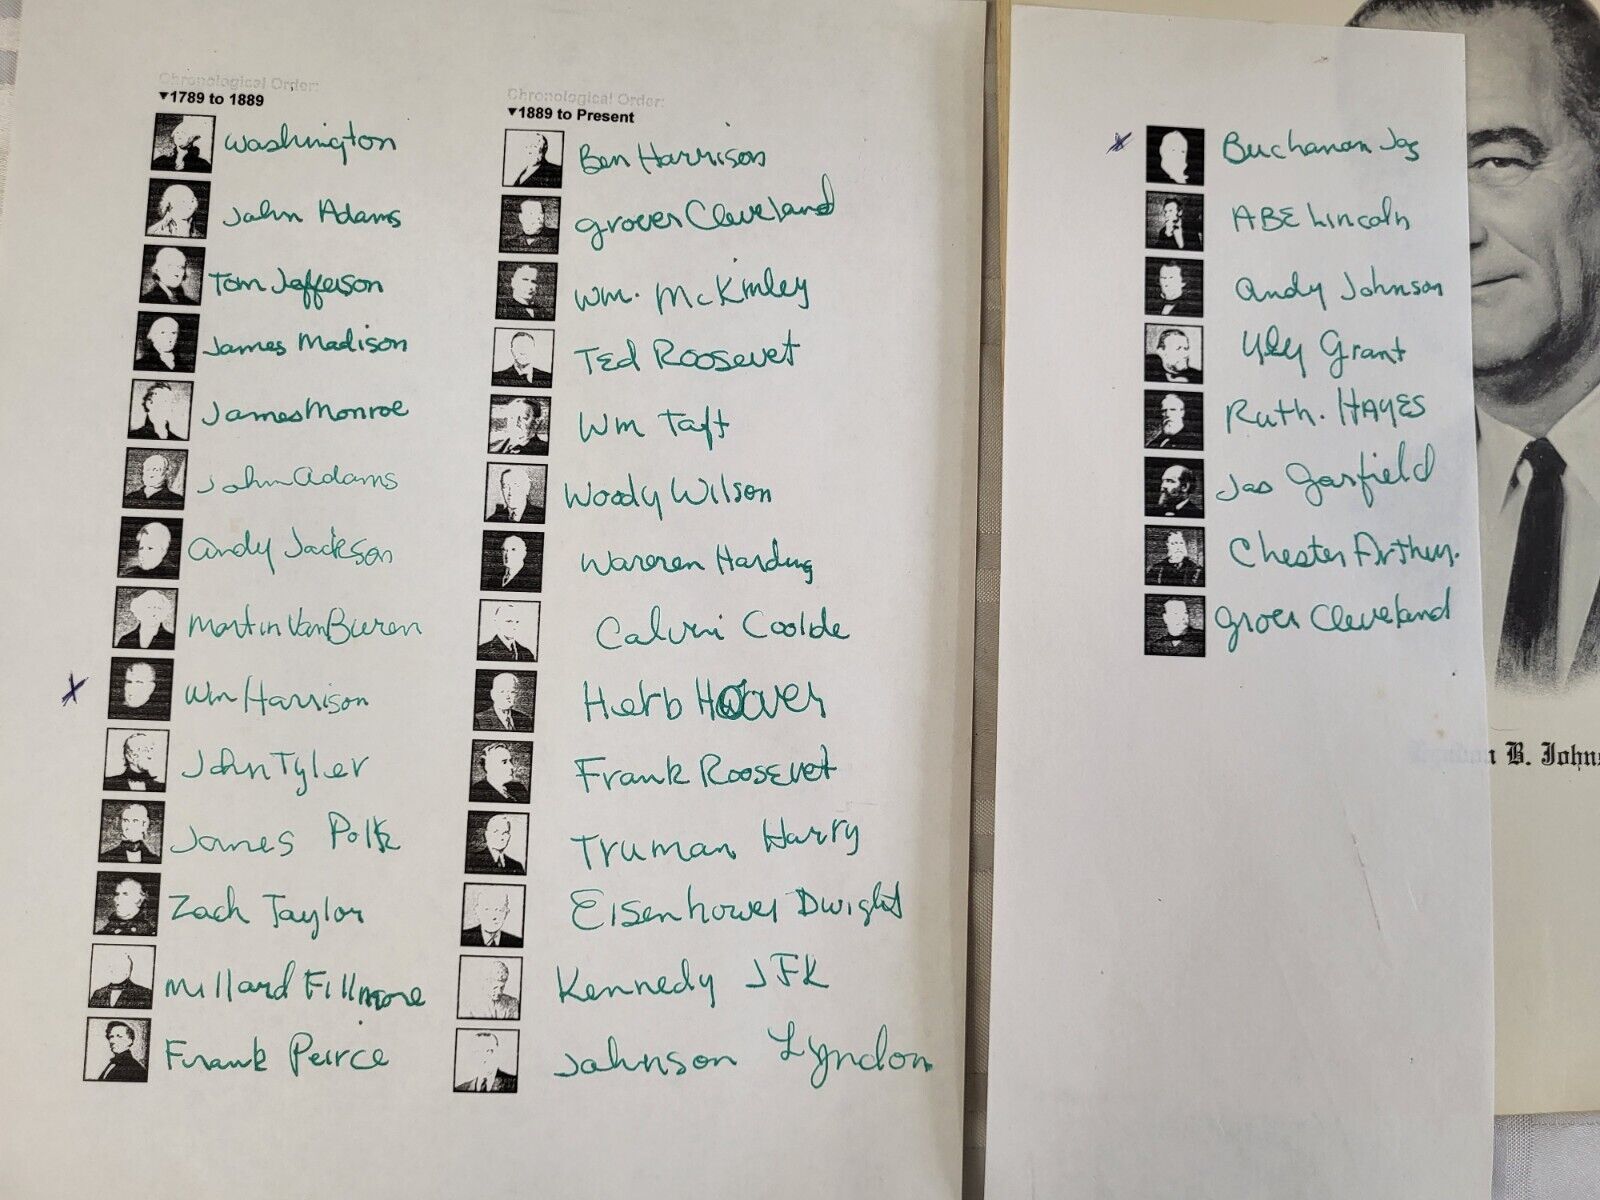 Chronological Order:
▼1789 to 1889
Washington
John Adams
Tom Jefferson
James Madison
James Monroe
John Adams
Andy Jackson
Martin Van Buren
x Wm Harrison
John Tyler
James Polk
Zach Taylor
Millard Fillmore
Frank Peirce
Chronological Order:
▼1889 to Present
Ben Harrison
Grover Cleveland
Wm. McKinley
TEd Roosevet
Wm Taft
Woody Wilson
Warren Harding
Calvin Coolde
Herb Hoover
Frank Roosevet
Truman Harry
Eisenhower Dwight
Kennedy JFK
Johnson Lyndon
x Buchanan Jas
ABE Lincoln
Andy Johnson
Uly Grant
Ruth. HAYES
Jas Garfield
Chester Arthur.
Grover Cleveland
B. Johns